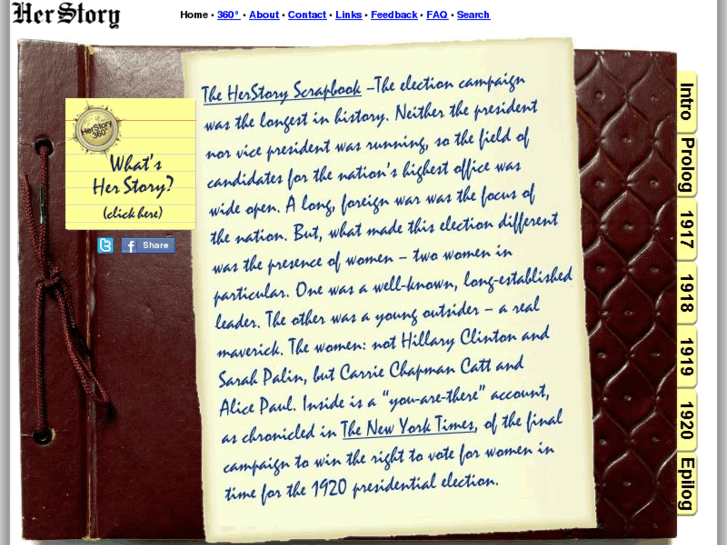 HerStory
Home • 360° • About • Contact • Links • Feedback • FAQ • Search
HerStory
360°
What's
HerStory?
(click here)
Share
The HerStory Scrapbook –The election campaign
was the longest in history. Neither the president
nor vice president was running, so the field of
candidates for the nation's highest office was
wide open. A long, foreign war was the focus of
the nation. But, what made this election different
was the presence of women – two women in
particular. One was a well-known, long-established
leader. The other was a young outsider – a real
maverick. The women: not Hillary Clinton and
Sarah Palin, but Carrie Chapman Catt and
Alice Paul. Inside is a "you-are-there" account,
as chronicled in The New York Times, of the final
campaign to win the right to vote for women in
time for the 1920 presidential election.
Intro
Prolog
1917
1918
1919
1920
Epilog